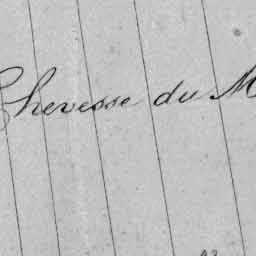 Chevesse du M